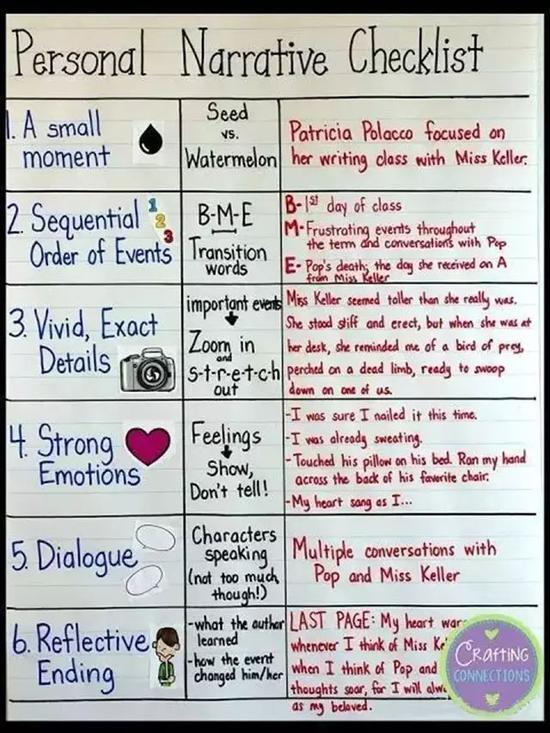 Personal Narrative Checklist
1. A small
moment
Seed
vs.
Watermelon
Patricia Polacco focused on
her writing class with Miss Keller.
2. Sequential
Order of Events
1
2
3
B-M-E
Transition
words
B-1st day of class
M-Frustrating events throughout
the term and conversations with Pop
E- Pop's death; the day she received an A
from Miss Keller
3. Vivid, Exact
Details
important events
Zoom in
and
s-t-r-e-t-c-h
out
Miss Keller seemed taller than she really was.
She stood stiff and erect, but when she was at
her desk, she reminded me of a bird of prey,
perched on a dead limb, ready to swoop
down on one of us.
4. Strong
Emotions
Feelings
Show,
Don't tell!
-I was sure I nailed it this time.
-I was already sweating.
-Touched his pillow on his bed. Ran my hand
across the back of his favorite chair.
-My heart sang as I...
5. Dialogue
Characters
speaking
(not too much,
though!)
Multiple conversations with
Pop and Miss Keller
6. Reflective
Ending
-what the author
learned
-how the event
changed him/her
LAST PAGE: My heart
whenever I think of Miss
when I think of Pop and
thoughts soar, for I will
as my beloved.
Crafting
CONNECTIONS